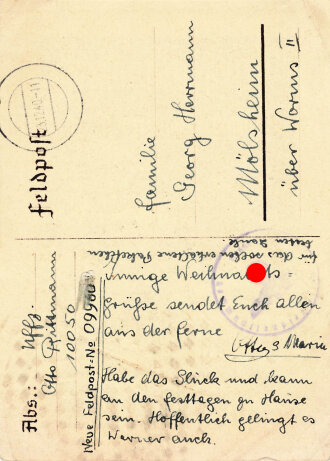 Feldpost
Familie
Georg Herrmann
Mölsheim
über Worms II
Abs.: Uffz.
Otto Rittmann
10050
Neue Feldpost-No 09960
für das soeben erhaltene Paketchen
besten Dank.
innige Weihnachts=
grüße sendet Euch allen
aus der ferne
Habe das Glück und kann
an den festtagen zu Hause
sein. Hoffentlich gelingt es
Werner auch.